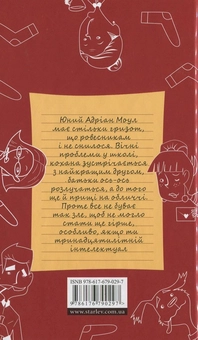 Юний Адріан Моул
має стільки гризот,
що ровесникам
і не снилося. Вічні
проблеми у школі,
кохана зустрічається
з найкращим другом,
батьки ось-ось
розлучаться, а до того
ще й прищі на обличчі.
Проте все не буває
так зле, щоб не могло
стати ще гірше,
особливо, якщо ти
тринадцятилітній
інтелектуал
ISBN 978-617-679-029-7
9786176790297
www.starlev.com.ua